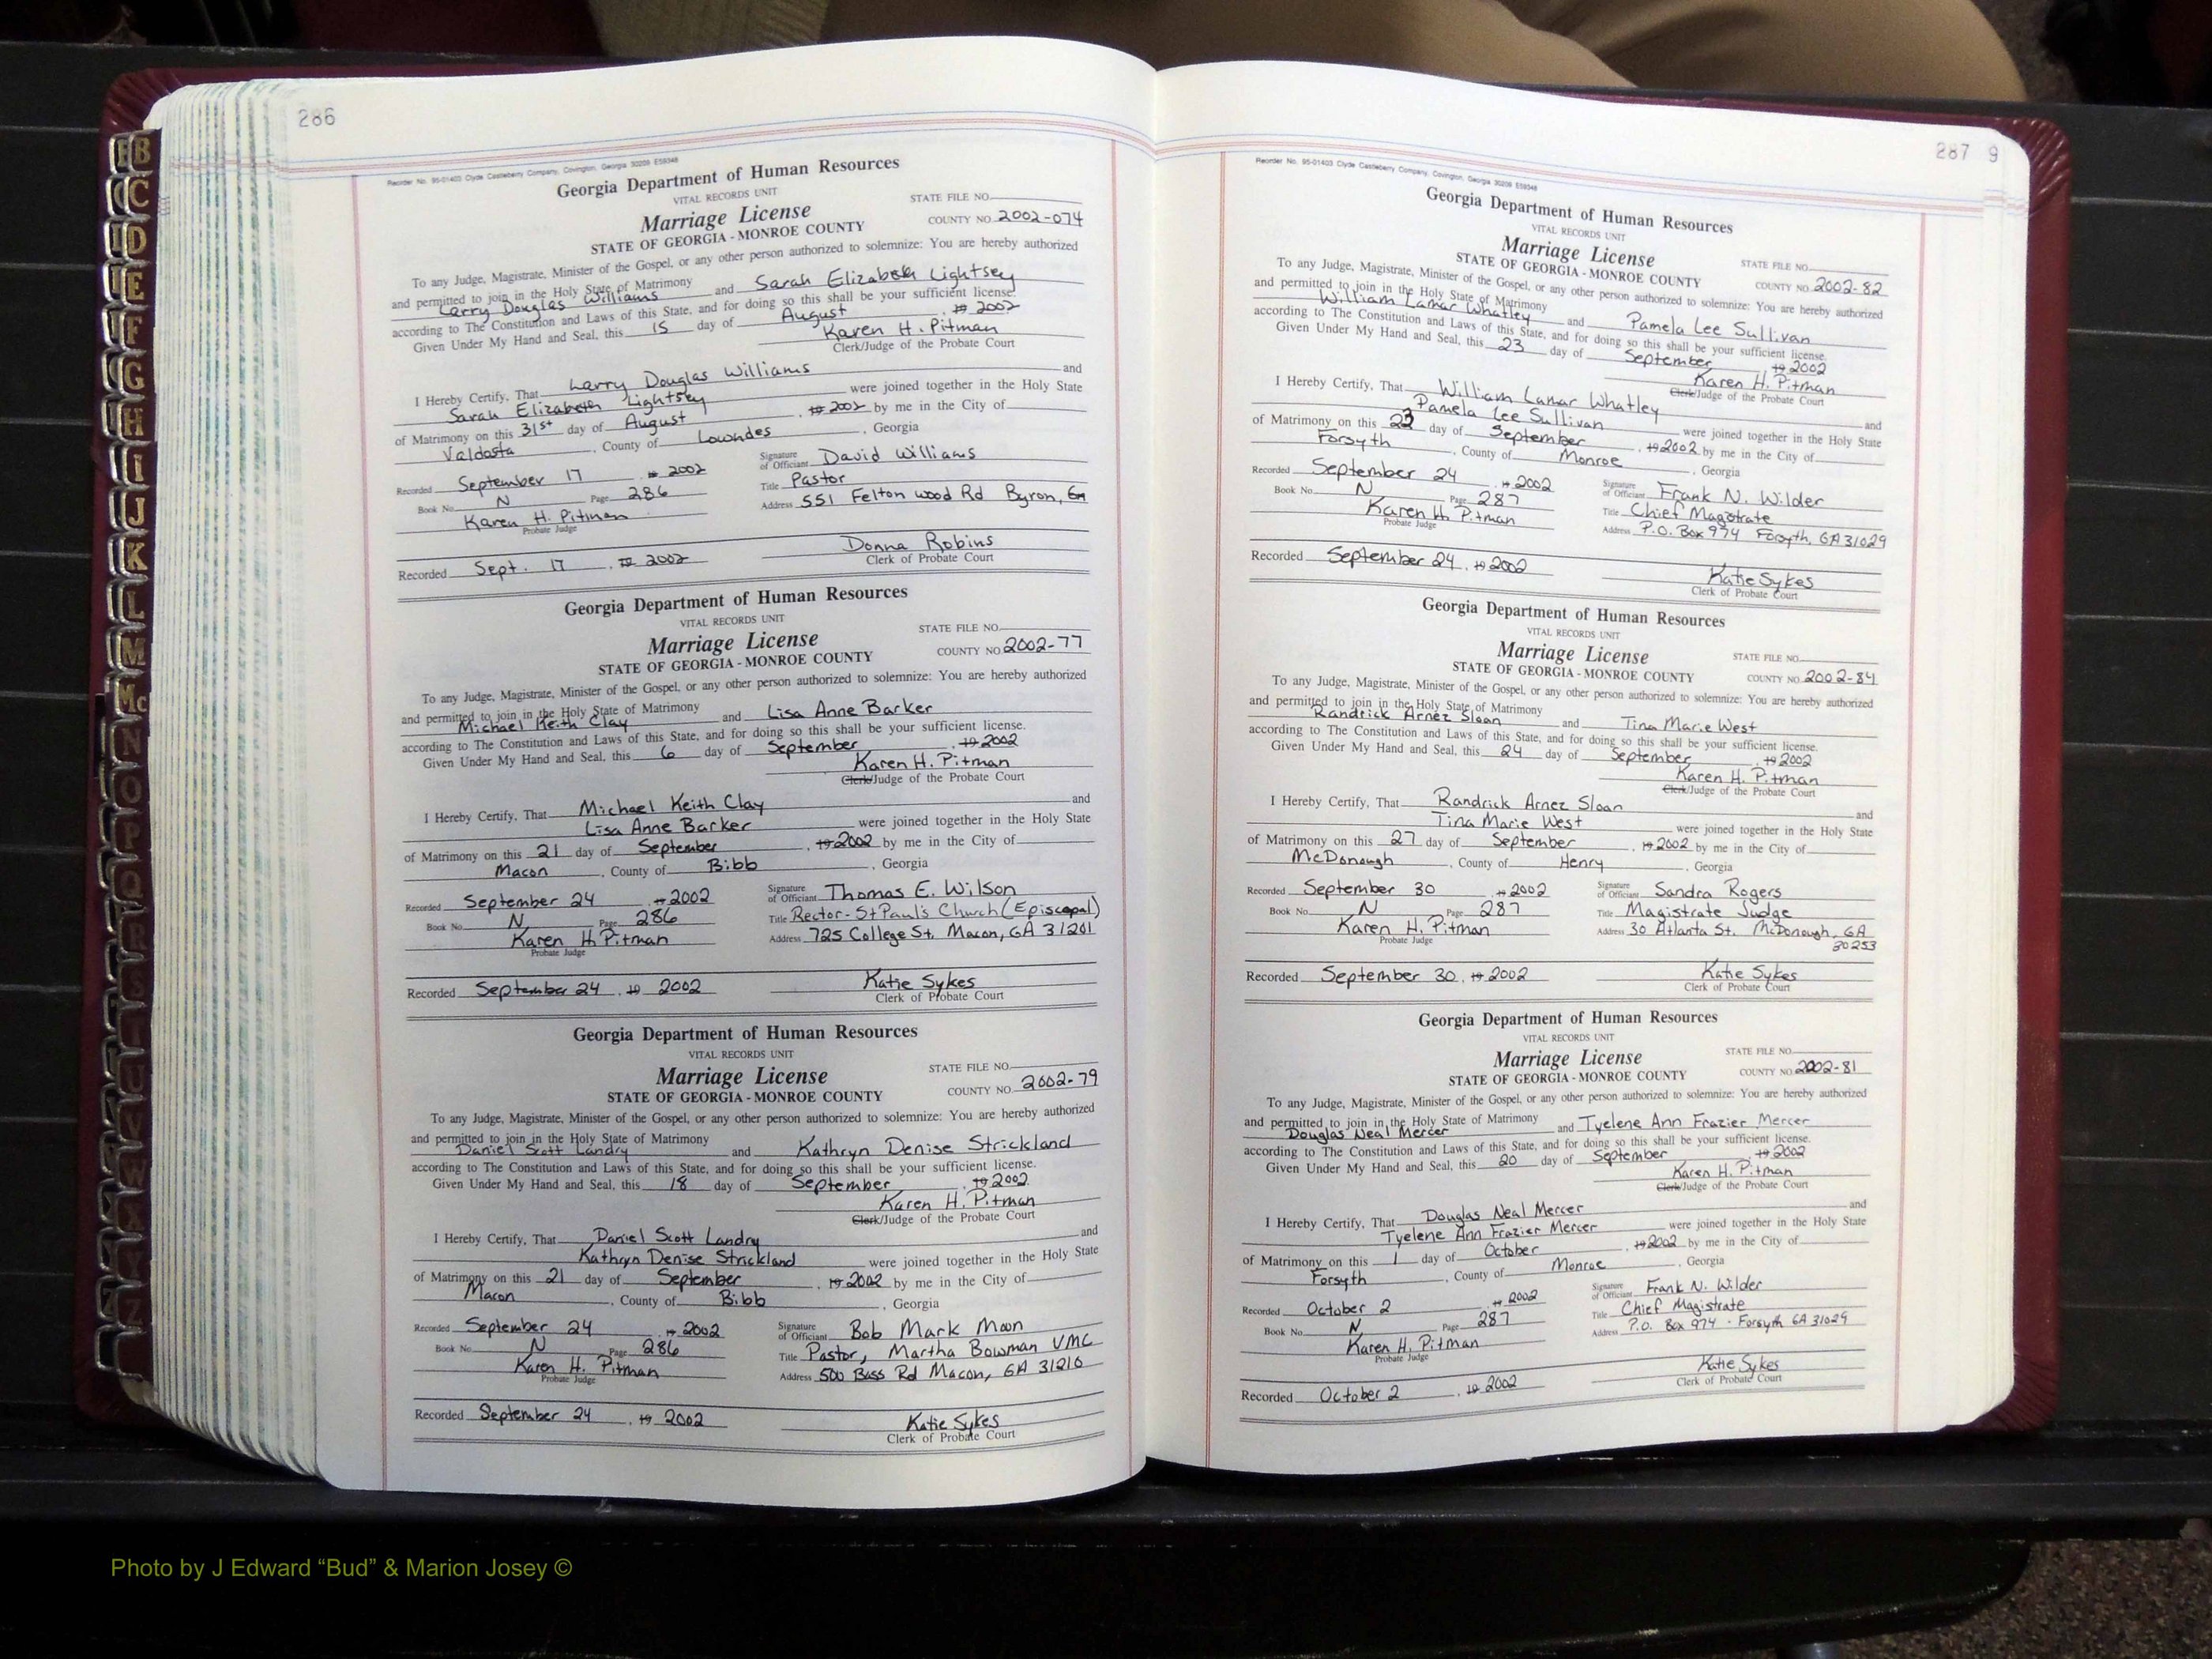 286
Reorder No. 95-01403 Clyde Castleberry Company, Covington, Georgia 30209 E59348
Georgia Department of Human Resources
VITAL RECORDS UNIT
STATE FILE NO.
Marriage License
COUNTY NO. 2002-074
STATE OF GEORGIA - MONROE COUNTY
To any Judge, Magistrate, Minister of the Gospel, or any other person authorized to solemnize: You are hereby authorized
and permitted to join in the Holy State of Matrimony
Larry Douglas Williams and Sarah Elizabeth Lightsey
according to The Constitution and Laws of this State, and for doing so this shall be your sufficient license.
Given Under My Hand and Seal, this 15 day of August , 19 2002
Karen H. Pitman
Clerk/Judge of the Probate Court
I Hereby Certify, That Larry Douglas Williams and
Sarah Elizabeth Lightsey were joined together in the Holy State
of Matrimony on this 31st day of August , 19 2002 by me in the City of
Valdosta , County of Lowndes , Georgia
Recorded September 17 , 19 2002
Signature of Officiant David Williams
Book No. N Page 286
Title Pastor
Karen H. Pitman
Address 551 Felton wood Rd Byron, Ga
Probate Judge
Donna Robins
Recorded Sept. 17 , 19 2002
Clerk of Probate Court
Georgia Department of Human Resources
VITAL RECORDS UNIT
STATE FILE NO.
Marriage License
COUNTY NO. 2002-77
STATE OF GEORGIA - MONROE COUNTY
To any Judge, Magistrate, Minister of the Gospel, or any other person authorized to solemnize: You are hereby authorized
and permitted to join in the Holy State of Matrimony
Michael Keith Clay and Lisa Anne Barker
according to The Constitution and Laws of this State, and for doing so this shall be your sufficient license.
Given Under My Hand and Seal, this 6 day of September , 19 2002
Karen H. Pitman
Clerk/Judge of the Probate Court
I Hereby Certify, That Michael Keith Clay and
Lisa Anne Barker were joined together in the Holy State
of Matrimony on this 21 day of September , 19 2002 by me in the City of
Macon , County of Bibb , Georgia
Recorded September 24 , 19 2002
Signature of Officiant Thomas E. Wilson
Book No. N Page 286
Title Rector - St Paul's Church (Episcopal)
Karen H. Pitman
Address 725 College St. Macon, GA 31201
Probate Judge
Katie Sykes
Recorded September 24 , 19 2002
Clerk of Probate Court
Georgia Department of Human Resources
VITAL RECORDS UNIT
STATE FILE NO.
Marriage License
COUNTY NO. 2002-79
STATE OF GEORGIA - MONROE COUNTY
To any Judge, Magistrate, Minister of the Gospel, or any other person authorized to solemnize: You are hereby authorized
and permitted to join in the Holy State of Matrimony
Daniel Scott Landry and Kathryn Denise Strickland
according to The Constitution and Laws of this State, and for doing so this shall be your sufficient license.
Given Under My Hand and Seal, this 18 day of September , 19 2002
Karen H. Pitman
Clerk/Judge of the Probate Court
I Hereby Certify, That Daniel Scott Landry and
Kathryn Denise Strickland were joined together in the Holy State
of Matrimony on this 21 day of September , 19 2002 by me in the City of
Macon , County of Bibb , Georgia
Recorded September 24 , 19 2002
Signature of Officiant Bob Mark Moon
Book No. N Page 286
Title Pastor, Martha Bowman UMC
Karen H. Pitman
Address 500 Bass Rd Macon, GA 31210
Probate Judge
Katie Sykes
Recorded September 24 , 19 2002
Clerk of Probate Court
287 9
Reorder No. 95-01403 Clyde Castleberry Company, Covington, Georgia 30209 E59348
Georgia Department of Human Resources
VITAL RECORDS UNIT
Marriage License
STATE FILE NO.
STATE OF GEORGIA - MONROE COUNTY
COUNTY NO. 2002-82
To any Judge, Magistrate, Minister of the Gospel, or any other person authorized to solemnize: You are hereby authorized
and permitted to join in the Holy State of Matrimony
William Lamar Whatley and Pamela Lee Sullivan
according to The Constitution and Laws of this State, and for doing so this shall be your sufficient license.
Given Under My Hand and Seal, this 23 day of September , 19 2002
Karen H. Pitman
Clerk/Judge of the Probate Court
I Hereby Certify, That William Lamar Whatley and
Pamela Lee Sullivan were joined together in the Holy State
of Matrimony on this 23 day of September , 19 2002 by me in the City of
Forsyth , County of Monroe , Georgia
Recorded September 24 , 19 2002
Signature of Officiant Frank N. Wilder
Book No. N Page 287
Title Chief Magistrate
Karen H. Pitman
Address P.O. Box 974 Forsyth, GA 31029
Probate Judge
Katie Sykes
Recorded September 24 , 19 2002
Clerk of Probate Court
Georgia Department of Human Resources
VITAL RECORDS UNIT
Marriage License
STATE FILE NO.
STATE OF GEORGIA - MONROE COUNTY
COUNTY NO. 2002-84
To any Judge, Magistrate, Minister of the Gospel, or any other person authorized to solemnize: You are hereby authorized
and permitted to join in the Holy State of Matrimony
Randrick Arnez Sloan and Tina Marie West
according to The Constitution and Laws of this State, and for doing so this shall be your sufficient license.
Given Under My Hand and Seal, this 24 day of September , 19 2002
Karen H. Pitman
Clerk/Judge of the Probate Court
I Hereby Certify, That Randrick Arnez Sloan and
Tina Marie West were joined together in the Holy State
of Matrimony on this 27 day of September , 19 2002 by me in the City of
McDonough , County of Henry , Georgia
Recorded September 30 , 19 2002
Signature of Officiant Sandra Rogers
Book No. N Page 287
Title Magistrate Judge
Karen H. Pitman
Address 30 Atlanta St. McDonough, GA
30253
Probate Judge
Katie Sykes
Recorded September 30 , 19 2002
Clerk of Probate Court
Georgia Department of Human Resources
VITAL RECORDS UNIT
Marriage License
STATE FILE NO.
STATE OF GEORGIA - MONROE COUNTY
COUNTY NO. 2002-81
To any Judge, Magistrate, Minister of the Gospel, or any other person authorized to solemnize: You are hereby authorized
and permitted to join in the Holy State of Matrimony
Douglas Neal Mercer and Tyelene Ann Frazier Mercer
according to The Constitution and Laws of this State, and for doing so this shall be your sufficient license.
Given Under My Hand and Seal, this 20 day of September , 19 2002
Karen H. Pitman
Clerk/Judge of the Probate Court
I Hereby Certify, That Douglas Neal Mercer and
Tyelene Ann Frazier Mercer were joined together in the Holy State
of Matrimony on this 1 day of October , 19 2002 by me in the City of
Forsyth , County of Monroe , Georgia
Recorded October 2 , 19 2002
Signature of Officiant Frank N. Wilder
Book No. N Page 287
Title Chief Magistrate
Karen H. Pitman
Address P.O. Box 974 - Forsyth GA 31029
Probate Judge
Katie Sykes
Recorded October 2 , 19 2002
Clerk of Probate Court
B
C
D
E
F
G
H
I
J
K
L
M
Mc
N
O
P
Q
R
S
T
U
V
W
X
Y
Z
Photo by J Edward “Bud” & Marion Josey ©